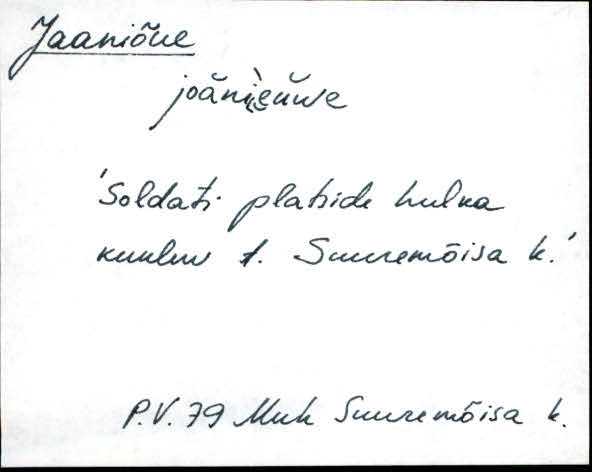 Jaaniõue
joăni̮eŭwe
'Soldati platside hulka
kuuluv t. Suuremõisa k.'
P.V. 79 Muh Suuremõisa k.